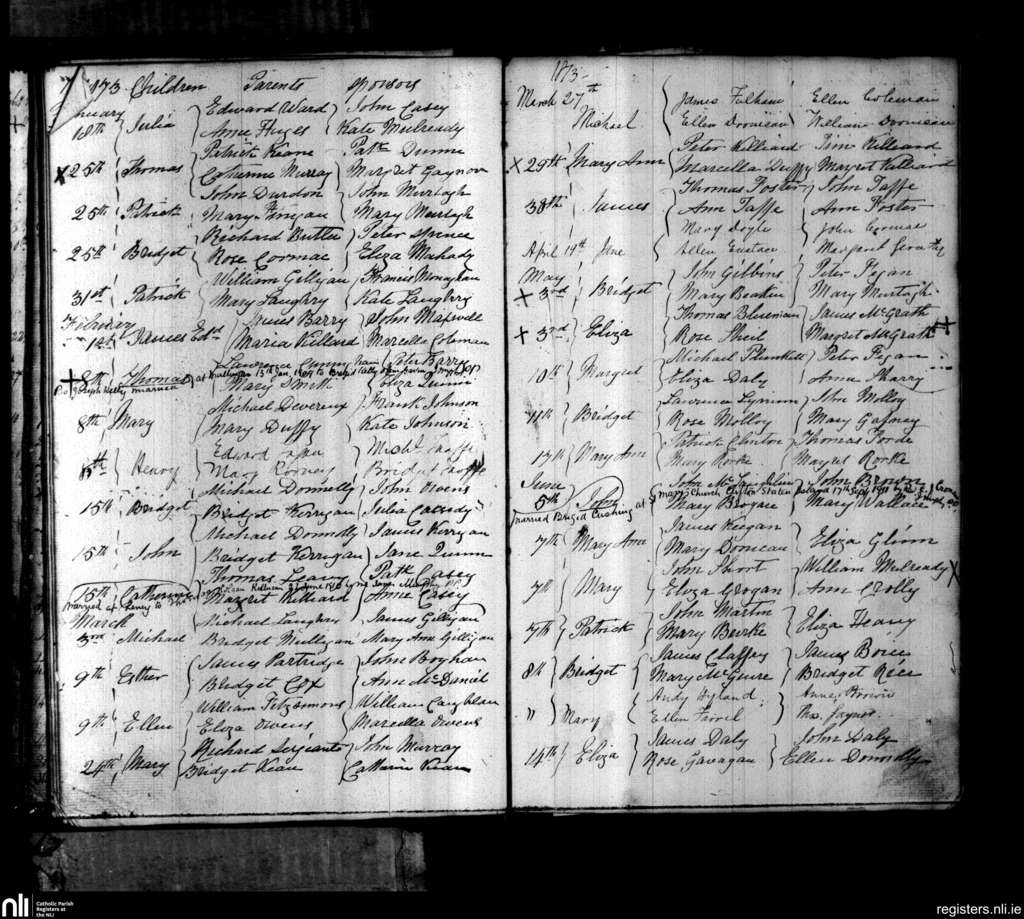 1873 Children Parents Sponsors
January Edward Ward John Casey
18th Julia Anne Huges Kate Mulready
Patrick Keane Patk Dunne
X 25th Thomas Catherine Murray Margret Gaynor
John Durdon John Murtagh
25th Patrick Mary Finegan Mary Murtagh
Richard Butler Peter Spence
25th Bridget Rose Cormac Eliza Mahady
William Gilligan Francis Monaghan
31st Patrick Mary Laughry Kate Laughry
James Barry John Maxwell
1st James Edd Maria Killard Marcella Coleman
Lawrence Cunningham Peter Barry
+ 8th Thomas Mary Smith Eliza Dunne
married at Mullingar
Michael Devereux Frank Johnson
8th Mary Mary Duffy Kate Johnson
Edward
Henry Mary
Michael Donnelly John Owens
15th Bridget Bridget Kerrigan Julia Cassidy
Michael Donnolly James Kerrigan
15th John Bridget Kerrogan Jane Dunne
Thomas Leavy Patk Casey
15th Catherine Margret Killiard Anne Casey
March Michael Laughry James Gilligan
3rd Michael Bridget Mulligan Mary Anne Gilligan
James Partridge John Boyhan
9th Esther Bridget Cox Ann McDaniel
William Fitzsimons William Coughlan
9th Ellen Eliza Owens Marcella Owens
Richard Serjeant John Murray
24th Mary Bridget Kean Catherine Kean
1873
March 27th James Fulham Ellen Coleman
Michael Ellen William
Peter Killiard Jim Killiard
X 29th Mary Ann Marcella Duffy Margret Killiard
Thomas Foster John Taffe
30th James Ann Taffe Ann Foster
Mary Doyle John Cormac
April 19th Jane Allen Eustace Margaret
May John Gibbins Peter Fegan
+ 3rd Bridget Mary Mary Murtagh
Thomas James McGrath
+ 3rd Eliza Rose Sheil Margret McGrath
Michael Plunkett Peter Fegan
10th Margret Eliza Daly Anne Sharry
Lawrence Lynam John Molloy
11th Bridget Rose Molloy Mary Gafney
Patrick Clinton Thomas Forde
17th Mary Ann Mary Rorke Margret Rorke
June John McLoughlin John Browne
5th John Mary Brogan Mary Wallace
married Bridged Cushing at St Mary's Church Clifton Staten Island 17th Sept 1911
James Keegan
7th Mary Anne Mary Eliza Glinn
John Short William Mulready X
7th Mary Eliza Grogan Ann Crolly
John Martin
7th Patrick Mary Bourke Eliza Heany
James Claffey James
8th Bridget Mary McGuire Bridget Rice
Andy Hyland Anne Brown
" Mary Ellen Farrel Ths. Gaynor
James Daly John Daly
14th Eliza Rose Gavagan Ellen Donnolly
nli Catholic Parish Registers at the NLI
registers.nli.ie